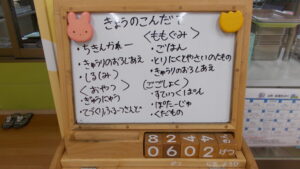 きょうのこんだて
・ちきんかれー
・きゅうりのおろしあえ
・しるみ
〈おやつ〉
・ぎゅうにゅう
・てづくりふるーつさんど
〈ももぐみ〉
・ごはん
・とりにくとやさいのにもの
・きゅうりのおろしあえ
〈ごごしょく〉
・すてぃっくぱん
・ぽたーじゅ
・くだもの